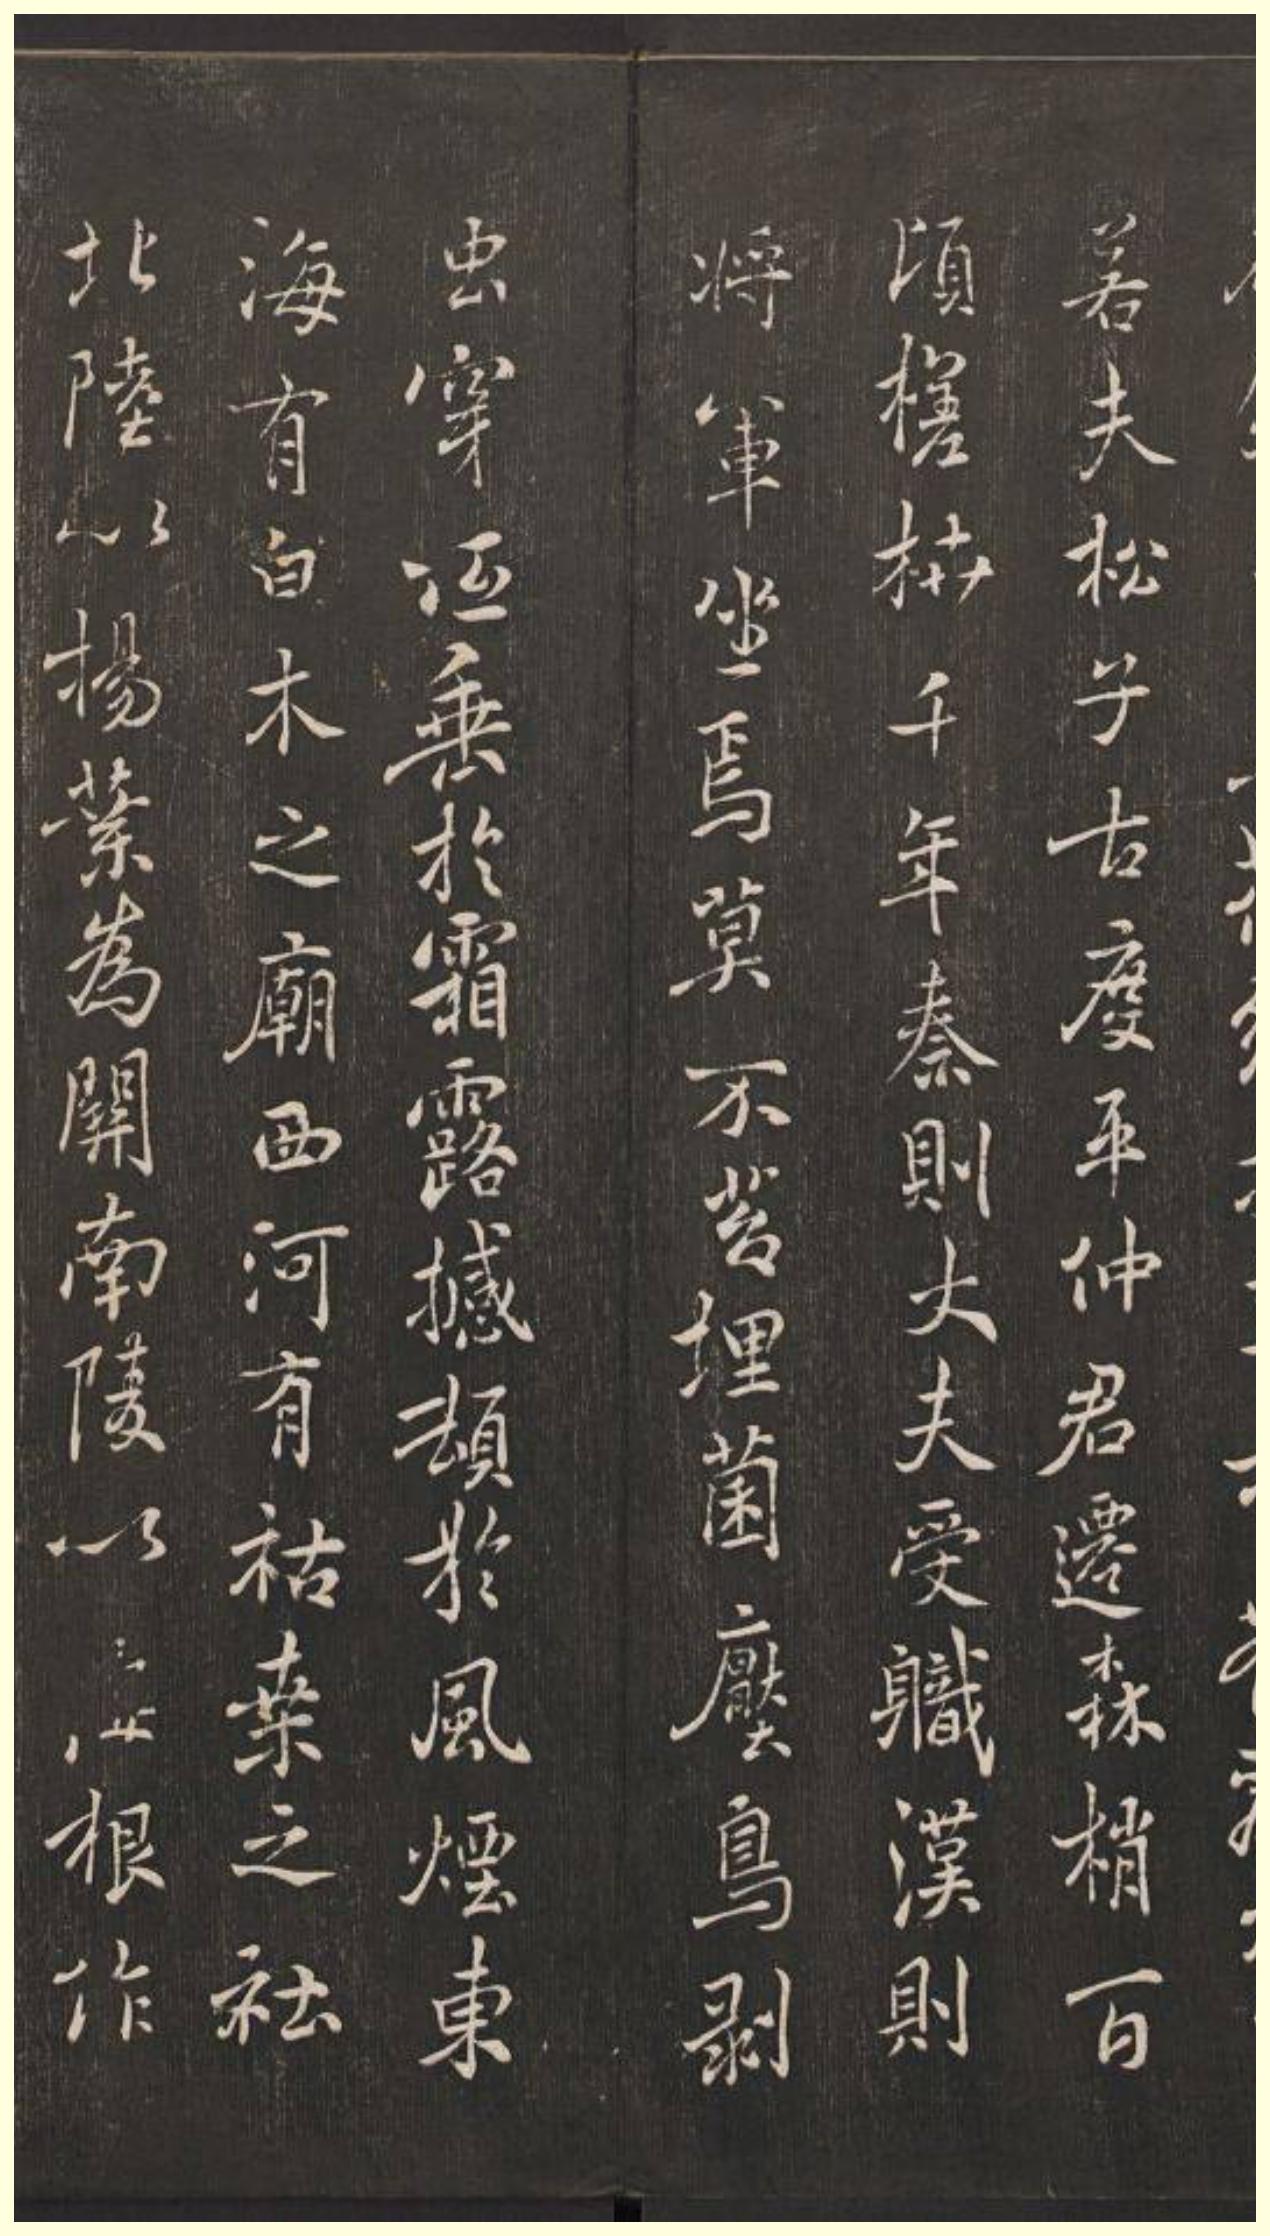 若夫松子古度平仲君遷森梢百
頃槎枿千年秦則大夫受職漢則
將軍坐焉莫不苔埋菌壓鳥剝
虫穿低垂於霜露撼頓於風煙東
海有白木之廟西河有枯桑之社
北陸以楊葉為關南陵以根作